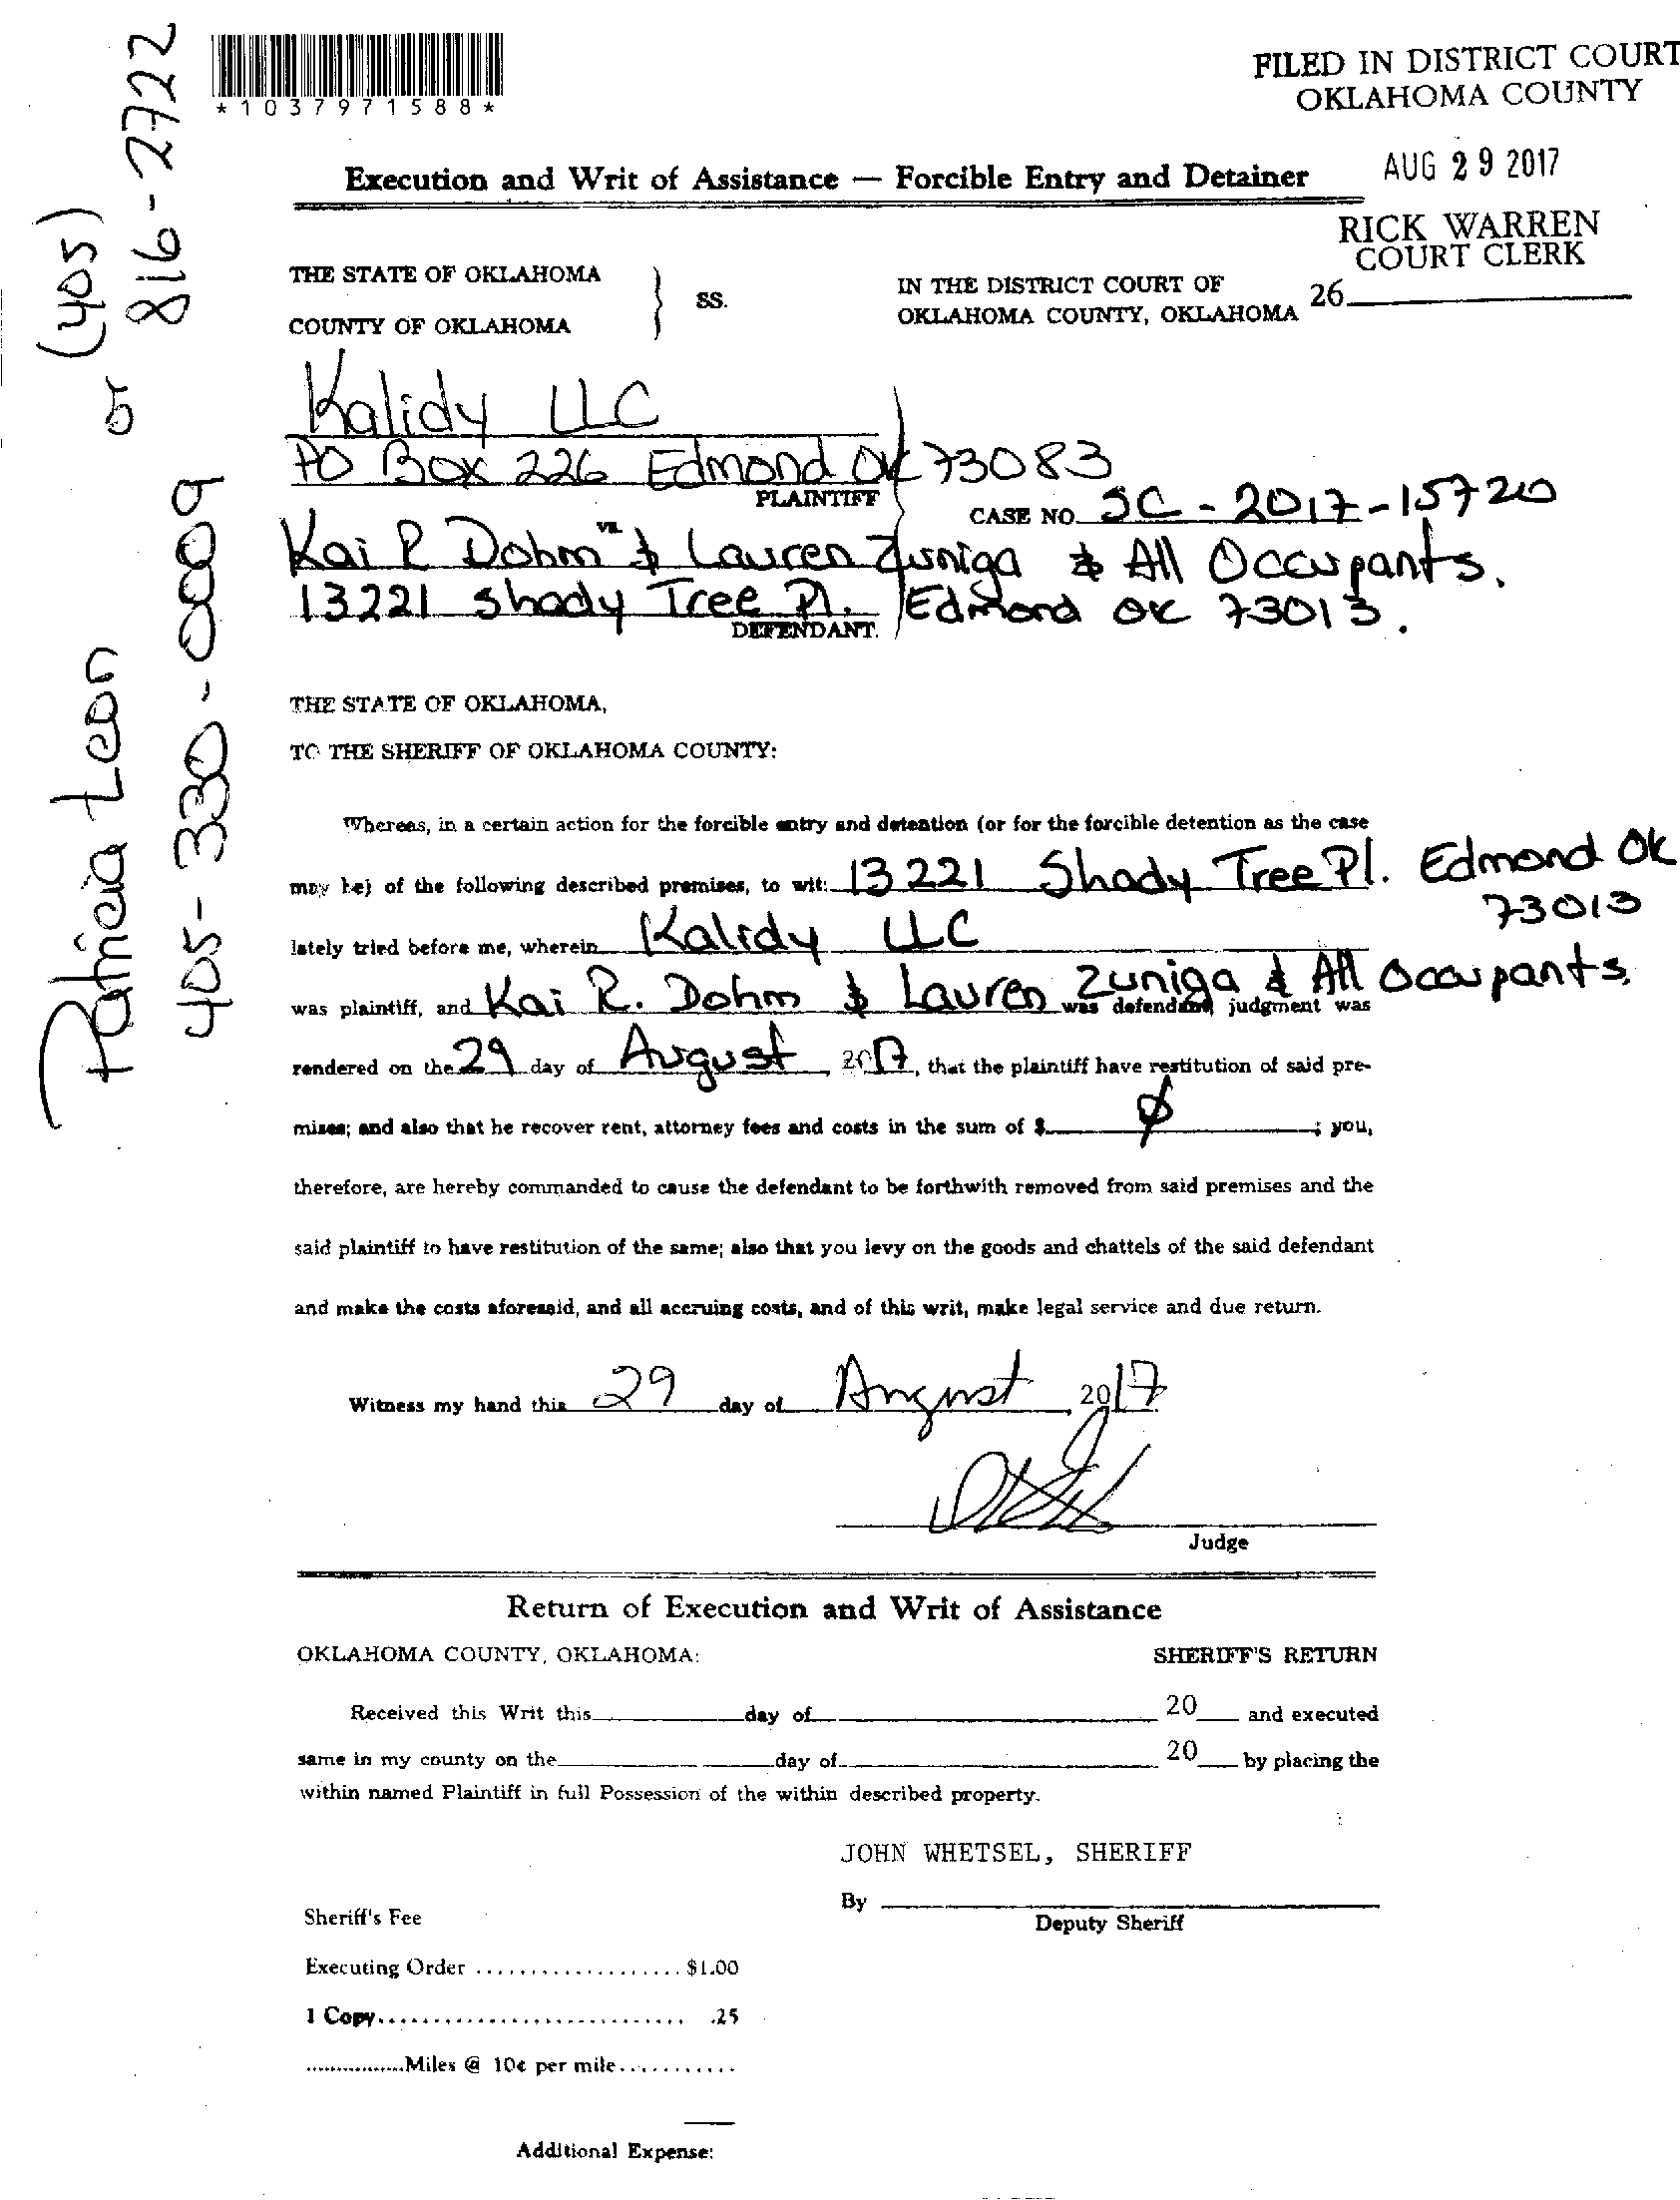 *1037971588*
FILED IN DISTRICT COURT
OKLAHOMA COUNTY
AUG 29 2017
RICK WARREN
COURT CLERK
26
Execution and Writ of Assistance — Forcible Entry and Detainer
THE STATE OF OKLAHOMA
COUNTY OF OKLAHOMA
} SS.
IN THE DISTRICT COURT OF
OKLAHOMA COUNTY, OKLAHOMA
Kalidy LLC
PO Box 226 Edmond OK 73083
PLAINTIFF
vs.
CASE NO. SC-2017-15720
Kai R Dohm & Lauren Zuniga & All Occupants.
13221 Shady Tree Pl. Edmond OK 73013.
DEFENDANT.
THE STATE OF OKLAHOMA,
TO THE SHERIFF OF OKLAHOMA COUNTY:
Whereas, in a certain action for the forcible entry and detention (or for the forcible detention as the case
may be) of the following described premises, to wit: 13221 Shady Tree Pl. Edmond OK
73013
lately tried before me, wherein Kalidy LLC
was plaintiff, and Kai R. Dohm & Lauren Zuniga & All Occupants, was defendant judgment was
rendered on the 29 day of August, 2017, that the plaintiff have restitution of said pre-
mises; and also that he recover rent, attorney fees and costs in the sum of $ ø ; you,
therefore, are hereby commanded to cause the defendant to be forthwith removed from said premises and the
said plaintiff to have restitution of the same; also that you levy on the goods and chattels of the said defendant
and make the costs aforesaid, and all accruing costs, and of this writ, make legal service and due return.
Witness my hand this 29 day of August, 2017
Judge
Return of Execution and Writ of Assistance
OKLAHOMA COUNTY, OKLAHOMA:
SHERIFF'S RETURN
Received this Writ this day of 20 and executed
same in my county on the day of 20 by placing the
within named Plaintiff in full Possession of the within described property.
JOHN WHETSEL, SHERIFF
By
Deputy Sheriff
Sheriff's Fee
Executing Order ................... $1.00
1 Copy............................ .25
................Miles @ 10¢ per mile...........
Additional Expense:
Patricia Leon
405-330-0009
or (405)
816-2722